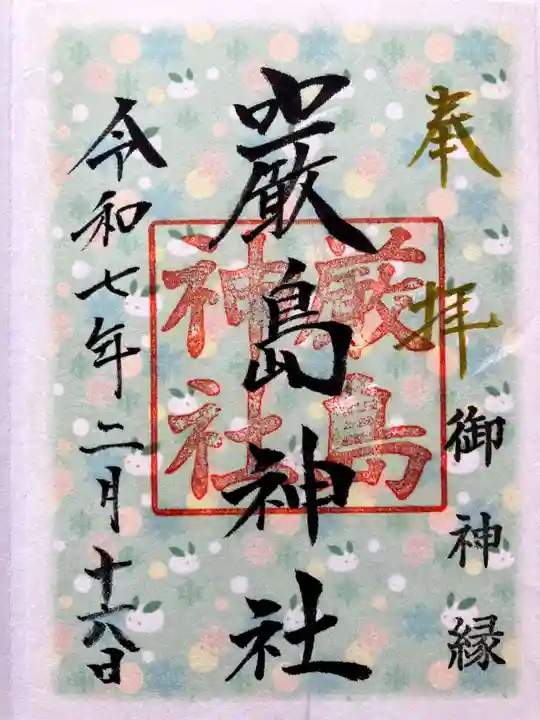 奉拝
御神縁
嚴島神社
厳島
神社
令和七年二月十六日